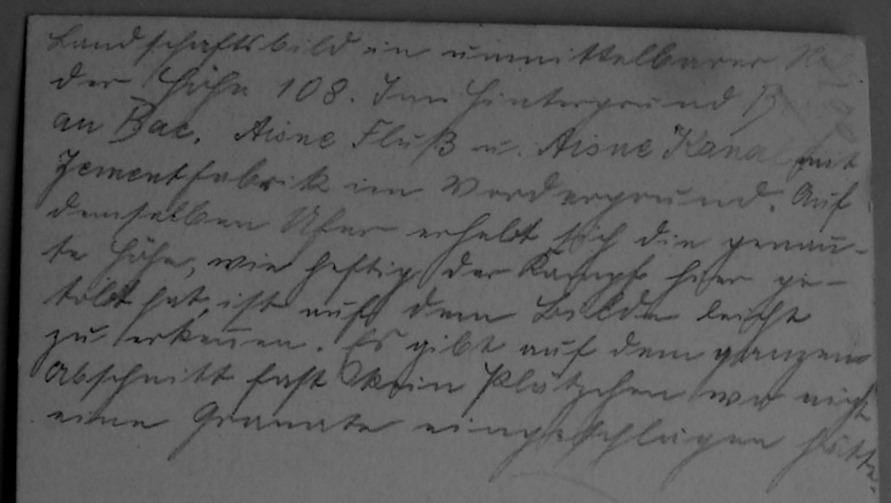 Landschaftsbild in unmittelbarer
der Höhe 108. Im Hintergrund
au Bac. Aisne Fluß u. Aisne Kanal mit
Zementfabrik im Vordergrund. Auf
demselben Ufer erhebt sich die genau-
te Höhe, wie heftig der Kampf hier ge-
tobt hat, ist auf dem Bilde leicht
zu erkennen. Es gibt auf dem ganzen
Abschnitt fast kein Plätzchen wo nicht
eine Granate eingeschlagen hätte.